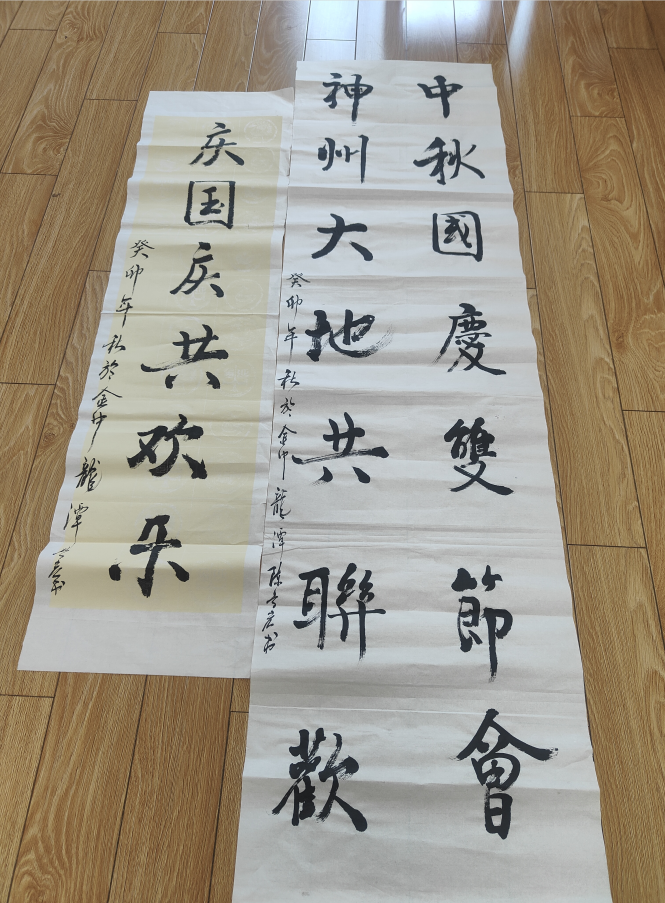 中秋國慶雙節會
神州大地共聯歡
癸卯年秋於金中龍潭陈
庆国庆共欢乐
癸卯年秋於金中龍潭